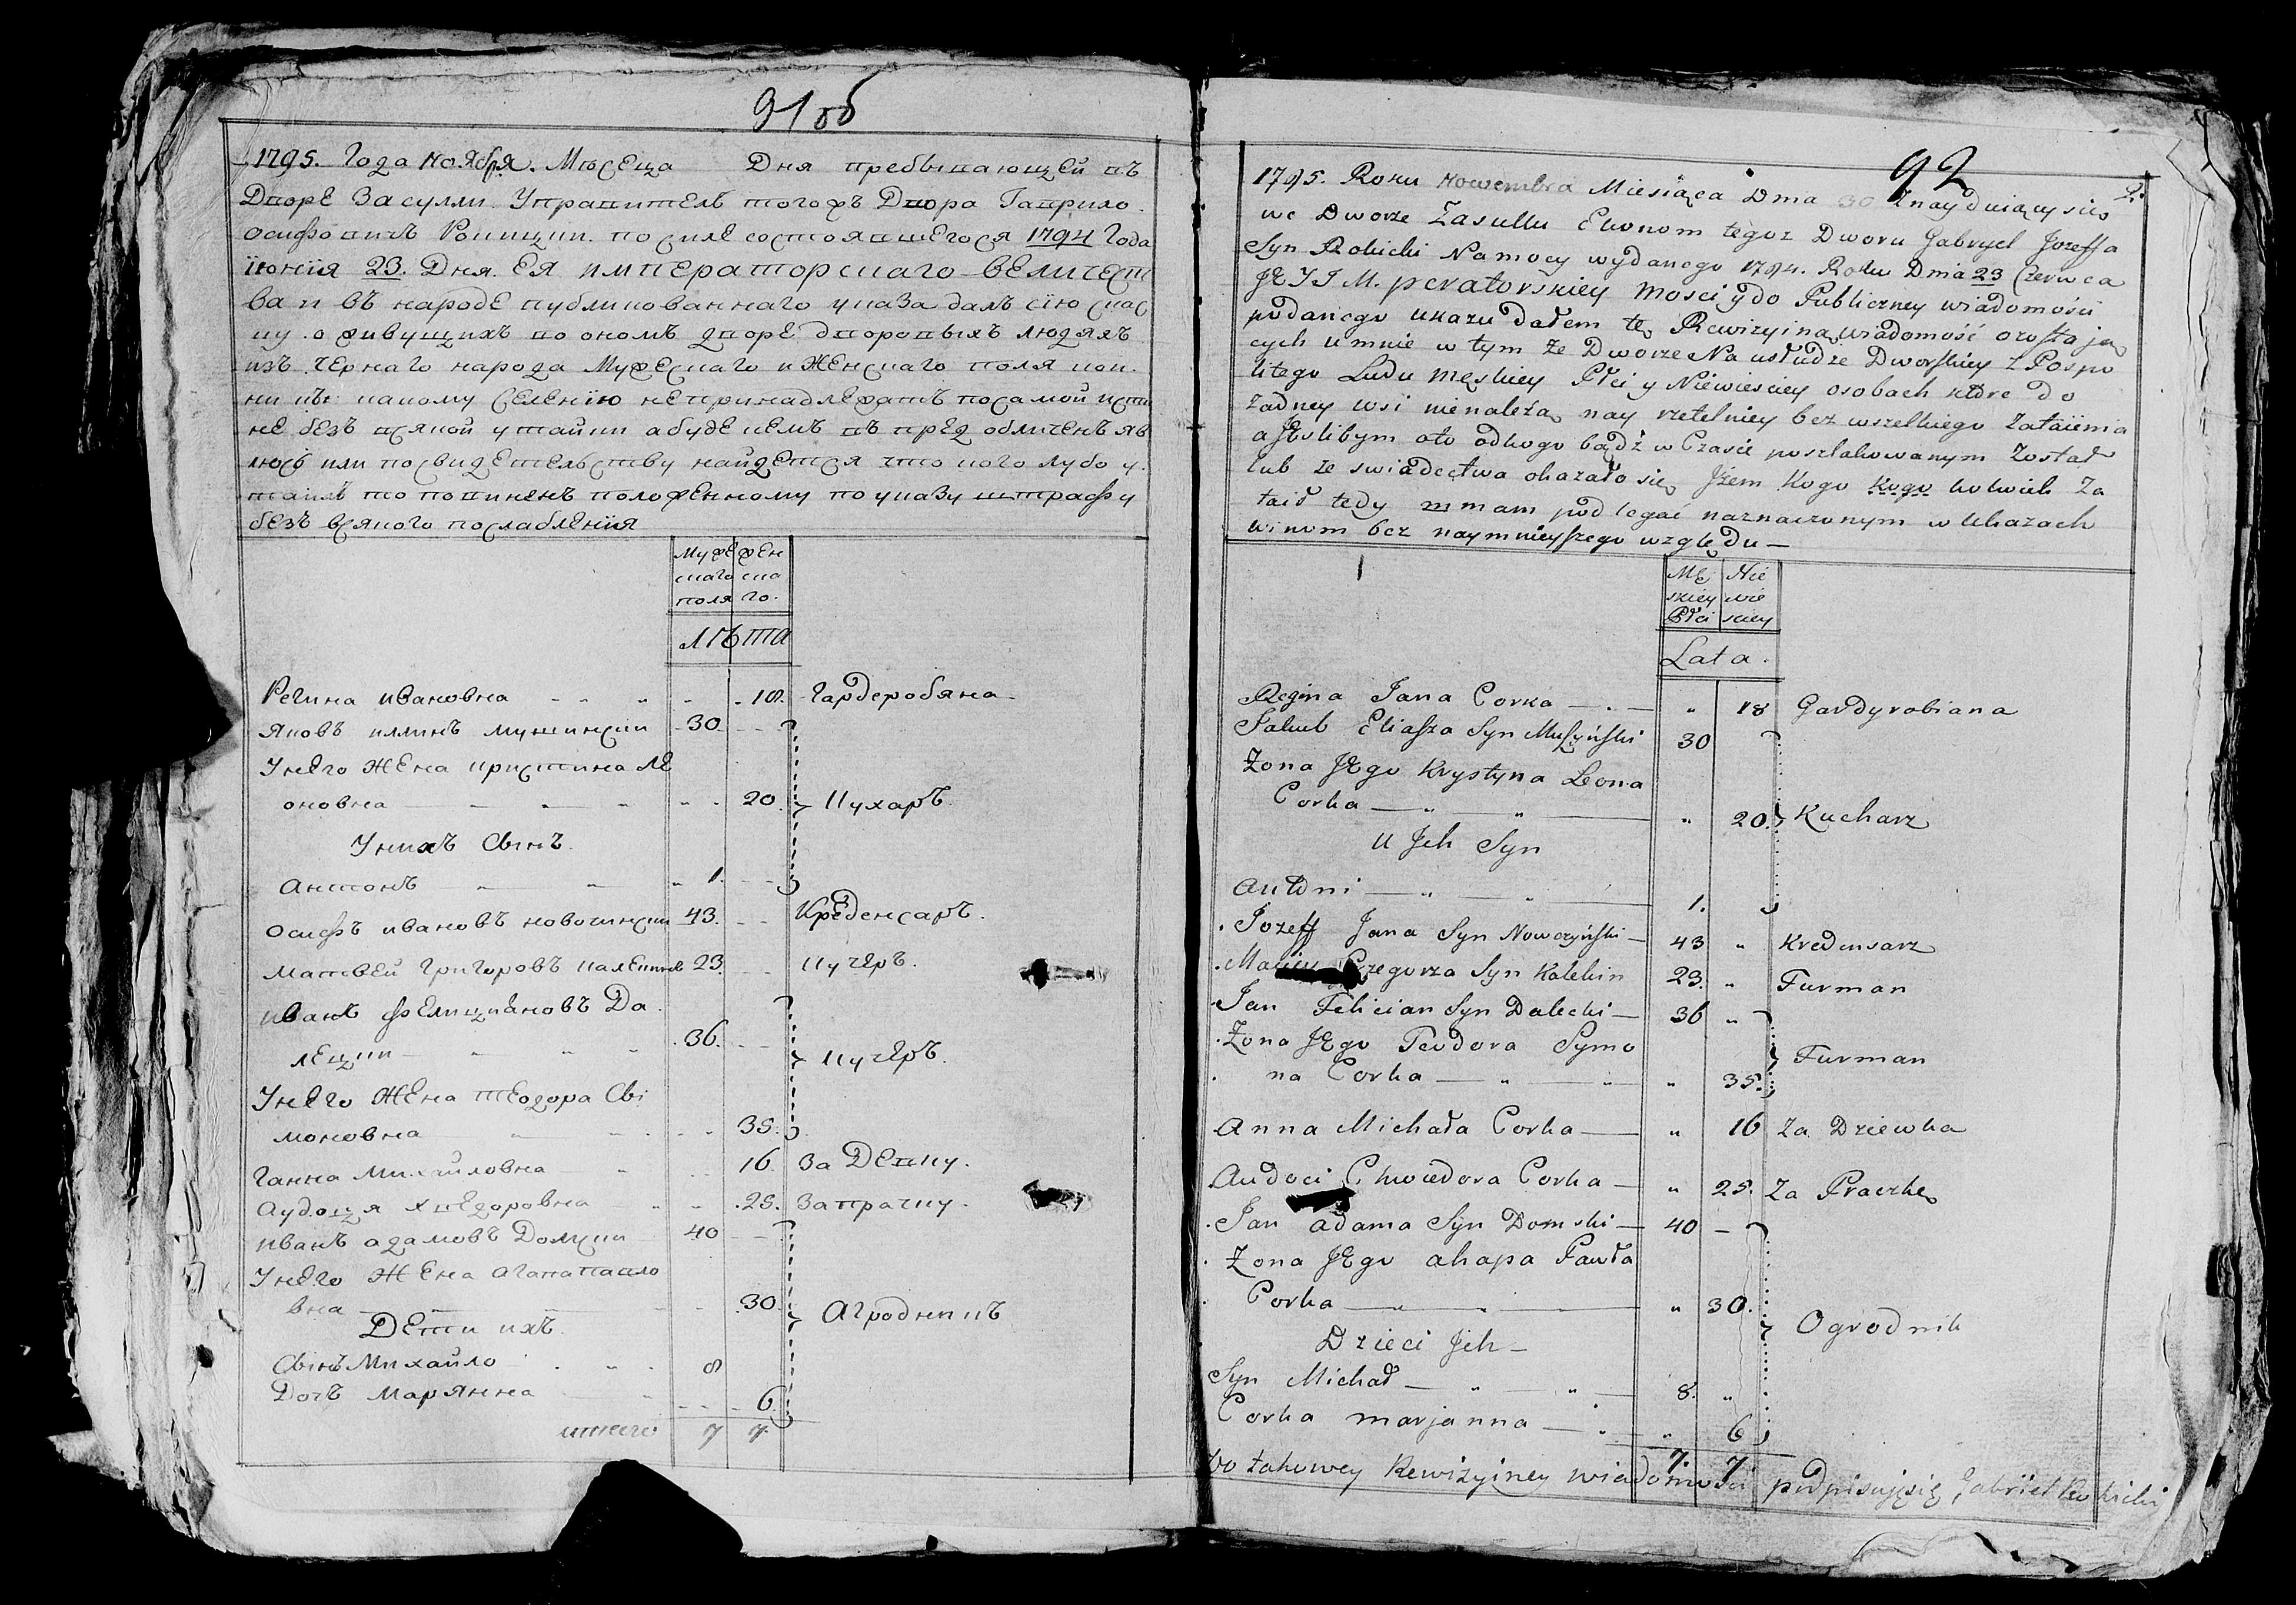 91об
1795. Года Ноября. Мѣсеца Дня пребывающей въ
Дворе Засулли Управитель тогожъ Двора Гаврило
Осифовичъ Рокицки. по силе состоявшегося 1794 Года
июнїя 23. Дня. Ея императорскаго величест
ва и въ народе публикованнаго указа далъ сїю скас
ку о живущихъ во ономъ дворе дворовыхъ людяхъ
изъ чернаго народа Мужескаго и Женскаго поля кои
ни къ какому селенїю непринадлежатъ посамой исти
не безъ всякой утайки а буде чемъ въ пред обличенъ яв
люсь или посвидетельству найдется что кого лубо у
таилъ то повиненъ положенному по указу штрафу
безъ всякого послабленїя
Муже жен
скаго ска
поля го.
Лѣта
Регина Ивановна 18. Гардеробяна
Яковъ иллинъ мушински 30
Унего Жена кристина Ле
оновна 20. Кухаръ.
Унихъ Сынъ
Антонъ 1.
Осифъ ивановъ новочински 43. Креденсаръ.
Матвей Григоровъ 23. Кучеръ.
иванъ Фелицияновъ Да
лецки 36. Кучеръ.
Унего Жена Теодора Сы
моновна 35.
Ганна Михайловна 16. За Девку.
Аудоця Хведоровна 25. Запрачку.
иванъ адамовъ Домски 40
Унего Жена Агапа павло
вна 30. Агродникъ
Дети ихъ.
Сынъ Михайло 8
Дочъ Марянна 6
итого 7 7.
92
2.
1795. Roku Nowembra Miesiąca Dnia 30 Znayduiący sie
we Dworze Zasullu Ekonom tegoz Dworu Gabryel Jozeffa
Syn Rokicki Na mocy wydanego 1794. Roku Dnia 23 Czerwca
JE JJ M. peratorskiey Mosci y do Publiczney wiadomosci
podanego ukazu dałem tę Rewizyiną wiadomość ozostają
cych umnie w tym Ze Dworze Na usłudze Dworskiey z Pospo
litego Ludu Męskiey Płci y Niewiesciey osobach które do
żadney wsi nienależą nay rzetelniey bez wszelkiego Zataiienia
a Jeslibym oto odkogo bądź w Czasie poszlakowanym Został
lub ze swiadectwa okazało się Jżem Kogo Kogo kolwiek Za
taił tedy mmam podlegać naznaczonym w Ukazach
winom bez naymnieyszego względu —
Mę Nie
skiey wie
Płci sciey
Lata.
Regina Jana Corka — 18 Gardyrobiana
Jakub Eliasza Syn Muszyński 30
Żona JEgo Krystyna Leona
Corka — 20 Kucharz
U Jch Syn
Antoni — 1.
Jozeff Jana Syn Nowczyński — 43 Kredensarz
Grzegorza Syn Kalekin 23. Furman
Jan Felician Syn Dalecki — 36
Żona JEgo Teodora Symo
na Corka — 35. Furman
Anna Michała Corka — 16 Za Dziewka
Audoci Chwiedora Corka — 25. Za Praczkę
Jan adama Syn Domski — 40 —
Żona JEgo ahapa Pawła
Corka — 30. Ogrodnik
Dzieci Jch —
Syn Michał — 8.
Corka marjanna — 6
7. 7
Do takowey Rewizyiney wiadomosci podpisuję się Gabriel Rokicki